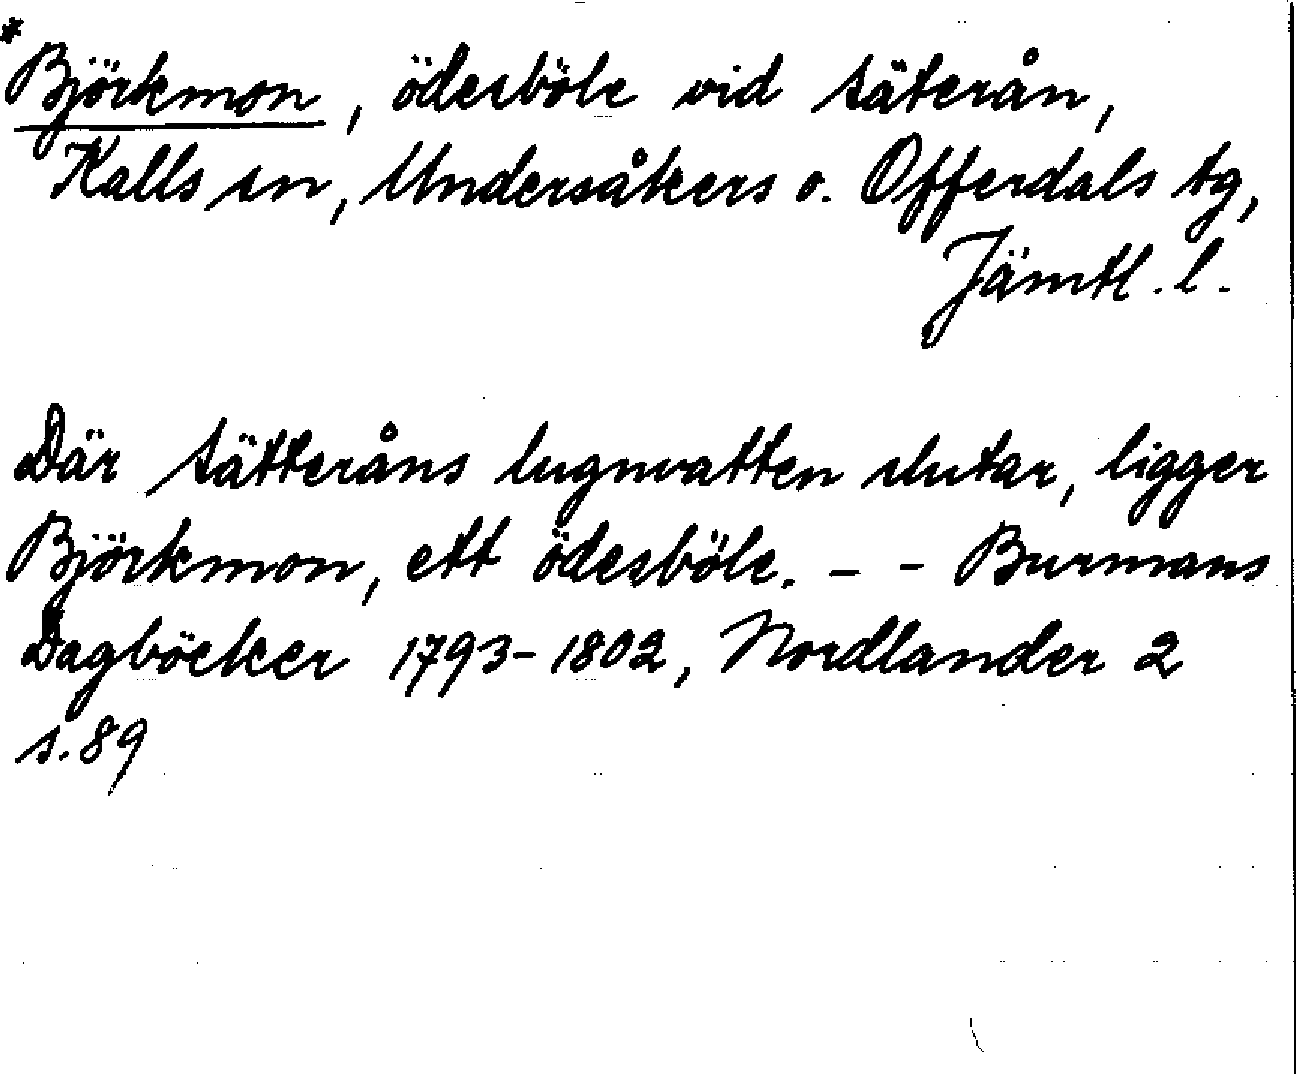 *
Björkmon, ödesböle vid Säterån,
Kalls sn, Undersåkers o. Offerdals tg,
Jämtl. l.
Där Sätteråns lugnvatten slutar, ligger
Björkmon, ett ödesböle. – – Burmans
Dagböcker 1793-1802, Nordlander 2
s. 89